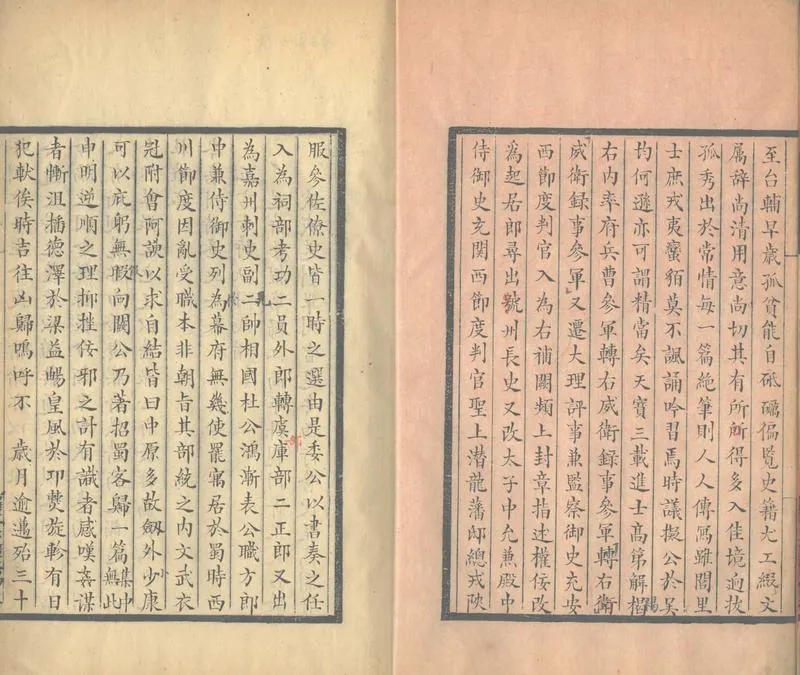 至台輔早歲孤貧能自砥礪偏覧史籍尤工綴文
属辞尚清用意尚切其有所所得多入佳境迥拔
孤秀出於常情每一篇絶筆則人人傳寫雖閭里
士庶戎夷蠻貊莫不諷誦吟習焉時議擬公於吴
均何遜亦可謂精當矣天寶三載進士高第解褐
右内率府兵曹參軍轉右威衛録事參軍轉右衛
威衛録事參軍又遷大理評事兼監察御史充安
西節度判官入為右補闕頻上封章指述權佞改
為起居郎尋出虢州長史又改太子中允兼殿中
侍御史充関西節度判官聖上潜龍藩邸總戎陜
服參佐僚史皆一時之選由是委公以書奏之任
入為祠部考功二員外郎轉虞庫部二正郎又出
為嘉州刺史副二帥相國杜公鴻漸表公職方郎
中兼侍御史列為幕府無幾使罷寓居於蜀時西
川節度因亂受職本非朝旨其部統之内文武衣
冠附會阿諛以求自結皆曰中原多故劔外少康
可以庇躬無暇向闕公乃著招蜀客歸一篇集中無此
申明逆順之理抑挫佞邪之計有識者感嘆姦謀
者慚沮播德澤於梁益暢皇風於邛僰旋軫有日
犯軷俟時吉往凶歸嗚呼不 歲月逾邁殆三十